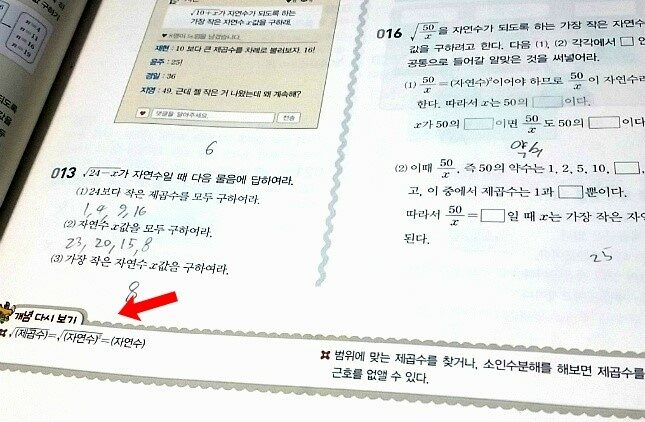 n=4
n=11
n=16
n=19
√10+x가 자연수가 되도록 하는
가장 작은 자연수 x값을 구하래.
재현 : 10 보다 큰 제곱수를 차례로 불러보자. 16!
윤주 : 25!
경일 : 36
지영 : 49. 근데 젤 작은 거 나왔는데 왜 계속해?
댓글을 달아주세요.
전송
6
013 √24-x가 자연수일 때 다음 물음에 답하여라.
(1) 24보다 작은 제곱수를 모두 구하여라.
1, 4, 9, 16
(2) 자연수 x값을 모두 구하여라.
23, 20, 15, 8
(3) 가장 작은 자연수 x값을 구하여라.
8
016 √50/x 을 자연수가 되도록 하는 가장 작은 자연수
값을 구하려고 한다. 다음 (1), (2) 각각에서 □ 안
공통으로 들어갈 알맞은 것을 써넣어라.
(1) 50/x=(자연수)²이어야 하므로 50/x 이 자연수
한다. 따라서 x는 50의 □이다.
x가 50의 □이면 50/x 도 50의 □이다
약수
(2) 이때 50/x, 즉 50의 약수는 1, 2, 5, 10, □,
고, 이 중에서 제곱수는 1과 □뿐이다.
따라서 50/x=□일 때 x는 가장 작은 자연
된다.
25
개념 다시 보기
√(제곱수)=√(자연수)²=(자연수)
범위에 맞는 제곱수를 찾거나, 소인수분해를 해보면 제곱수를
근호를 없앨 수 있다.